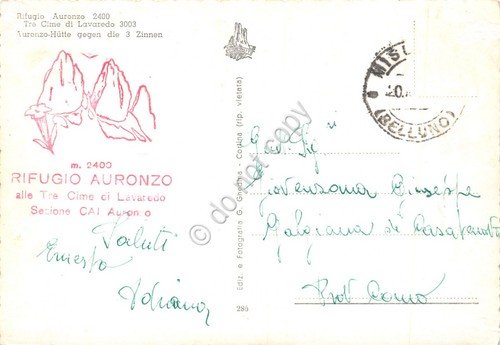 Rifugio Auronzo 2400
Tre Cime di Lavaredo 3003
Auronzo-Hütte gegen die 3 Zinnen
m. 2400
RIFUGIO AURONZO
alle Tre Cime di Lavaredo
Sezione CAI Auronzo
Saluti
Ernesto
Adriana
Ediz. e Fotografia G. Ghedina - Cortina (rip. vietata)
286
MISU
20.
(BELLUNO)
Giovenzana Giuseppe
Galgiana di Casatenovo
Prov Como
do not copy